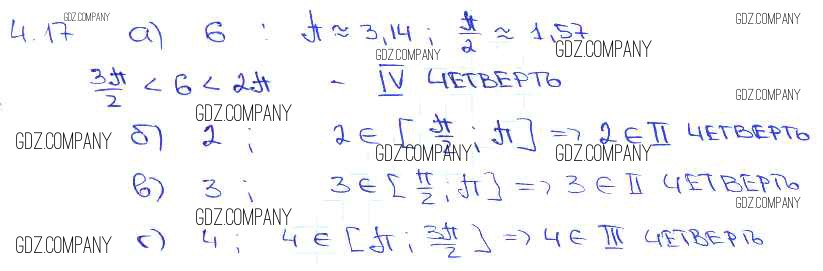 4.17 а) 6 : π ≈ 3,14 ; π/2 ≈ 1,57
GDZ.COMPANY GDZ.COMPANY GDZ.COMPANY GDZ.COMPANY
3π/2 < 6 < 2π - IV ЧЕТВЕРТЬ
GDZ.COMPANY GDZ.COMPANY
GDZ.COMPANY б) 2 ; 2 ∈ [π/2 ; π] => 2 ∈ II ЧЕТВЕРТЬ
GDZ.COMPANY GDZ.COMPANY
в) 3 ; 3 ∈ [π/2 ; π] => 3 ∈ II ЧЕТВЕРТЬ
GDZ.COMPANY GDZ.COMPANY
GDZ.COMPANY г) 4 ; 4 ∈ [π ; 3π/2] => 4 ∈ III ЧЕТВЕРТЬ